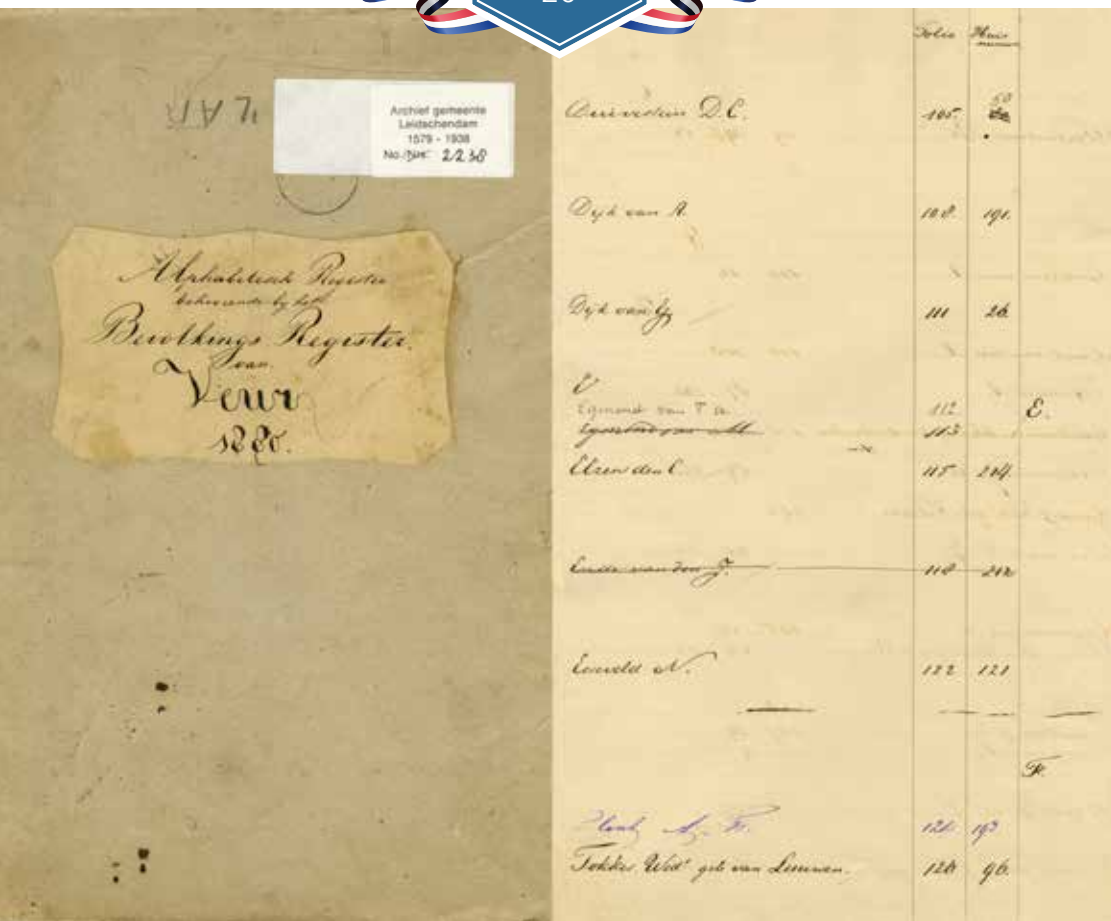 Archief gemeente
Leidschendam
1579 - 1938
No./Nrs. 2238
Alphabetisch Register
behoorende bij het
Bevolkings Register.
van
Veur
1880.
Folio Huis
nummer
Duivestein D.C. 105. 50
Dijk van A. 108. 191.
Dijk van G. 111 26.
E.
Egmond van 112
Egmond van M 113
Elzen den C. 115 204.
Ende van den J. 118 212
Ensveld N. 122 121
F.
A. 193
Fokker Wed. geb van Leeuwen. 126 96.